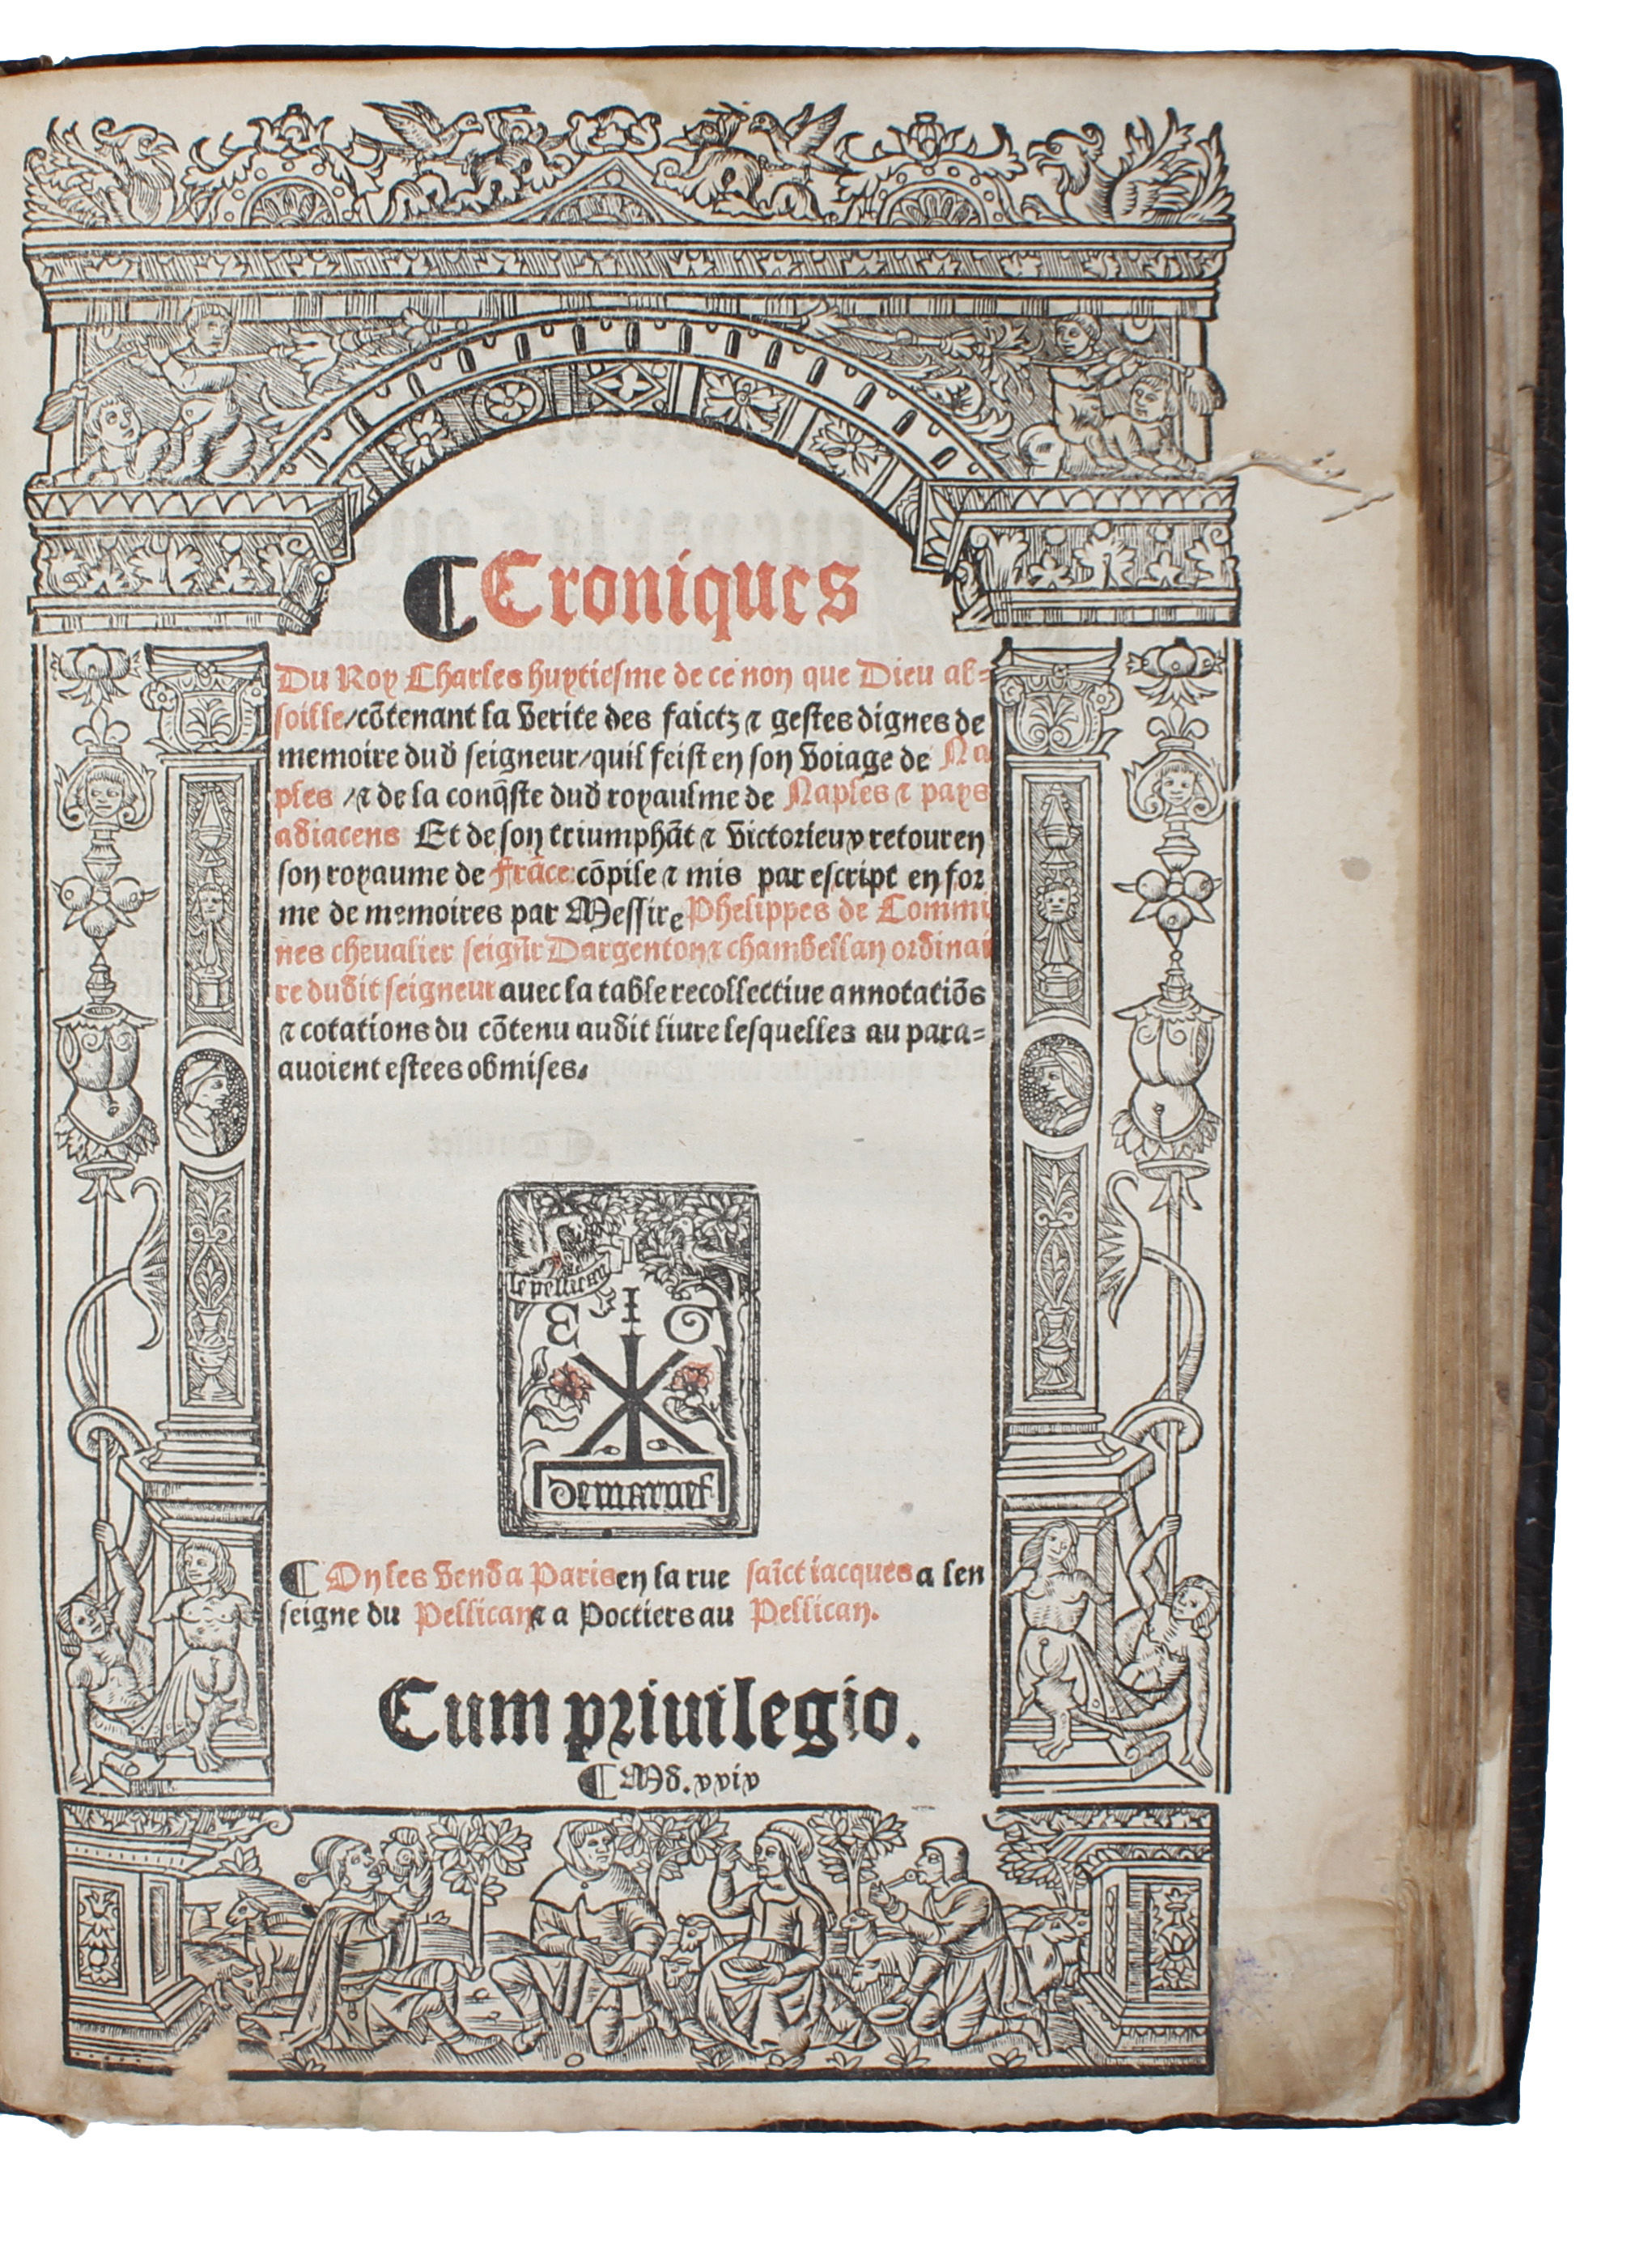 ¶Croniques
Du Roy Charles huytiesme de cē nom que Dieu ab=
soille/cōtenant la verite des faictz ⁊ gestes dignes de
memoire dud seigneur/quil feist en son voiage de Na
ples /⁊ de la conq̄ste dud royaulme de Naples ⁊ pays
adiacens Et de son triumphāt ⁊ victorieux retour en
son royaume de Frāce: cōpile ⁊ mis par escript en for
me de memoires par Messire Phelippes de Commi
nes chevalier seigñr Dargenton ⁊ chambellan ordinai
re dudit seigneur auec la table recollectiue annotatiōs
⁊ cotations du cōtenu audit liure lesquelles au para=
auoient estees obmises.
le pellican
E I G
demarnef
¶ On les vend a Paris en la rue saīct iacques a len
seigne du Pellican ⁊ a Poctiers au Pellican.
Cum priuilegio.
¶ Md.xxix